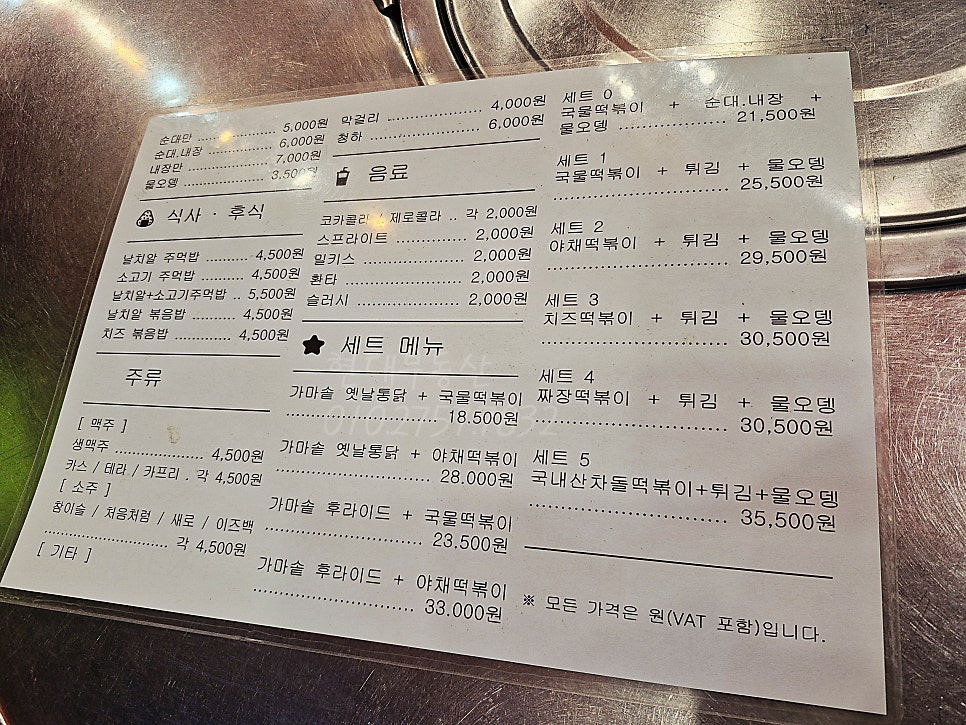 순대만 ........................ 5,000원
순대.내장 .................. 6,000원
내장만 ........................ 7,000원
물오뎅 ........................ 3,500원
식사 · 후식
날치알 주먹밥 ............... 4,500원
소고기 주먹밥 ............... 4,500원
날치알+소고기주먹밥 .. 5,500원
날치알 볶음밥 ........... 4,500원
치즈 볶음밥 ............. 4,500원
주류
[ 맥주 ]
생맥주 ........................ 4,500원
카스 / 테라 / 카프리 . 각 4,500원
[ 소주 ]
참이슬 / 처음처럼 / 새로 / 이즈백
.............................. 각 4,500원
[ 기타 ]
막걸리 ........................ 4,000원
청하 ........................... 6,000원
음료
코카콜라 / 제로콜라 .. 각 2,000원
스프라이트 ............... 2,000원
밀키스 ........................ 2,000원
환타 ........................... 2,000원
슬러시 ........................ 2,000원
세트 메뉴
가마솥 옛날통닭 + 국물떡볶이
.............................. 18.500원
가마솥 옛날통닭 + 야채떡볶이
.............................. 28.000원
가마솥 후라이드 + 국물떡볶이
.............................. 23.500원
가마솥 후라이드 + 야채떡볶이
.............................. 33.000원
세트 0
국물떡볶이 + 순대.내장 +
물오뎅 .................. 21,500원
세트 1
국물떡볶이 + 튀김 + 물오뎅
.............................. 25,500원
세트 2
야채떡볶이 + 튀김 + 물오뎅
.............................. 29,500원
세트 3
치즈떡볶이 + 튀김 + 물오뎅
.............................. 30,500원
세트 4
짜장떡볶이 + 튀김 + 물오뎅
.............................. 30,500원
세트 5
국내산차돌떡볶이+튀김+물오뎅
.............................. 35,500원
※ 모든 가격은 원(VAT 포함)입니다.